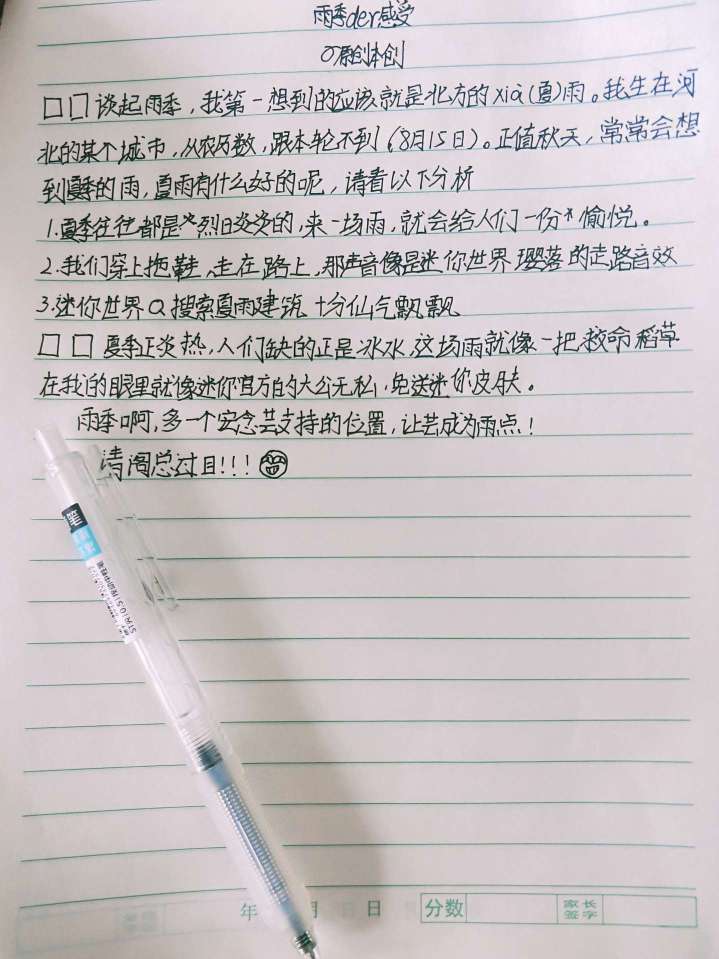 雨季der感受
原创本创
口口谈起雨季，我第一想到的应该就是北方的xià(夏)雨。我生在河
北的某个城市，从农历数，跟本轮不到(8月15日)。正值秋天，常常会想
到夏季的雨，夏雨有什么好的呢，请看以下分析
1.夏季往往都是*烈日炎炎的，来一场雨，就会给人们一份*愉悦。
2.我们穿上拖鞋，走在路上，那声音像是迷你世界璎落的走路音效
3.迷你世界Q搜索夏雨建筑 十分仙气飘飘
口口夏季正炎热，人们缺的正是冰水，这场雨就像一把救命稻草
在我的眼里就像迷你官方的大公无私，免送迷你皮肤。
雨季啊，多一个宏念芸支持的位置，让芸成为雨点！
请阁总过目!!!
笔
STA(0.5)按动中性笔
年 月 日 分数 家长签字